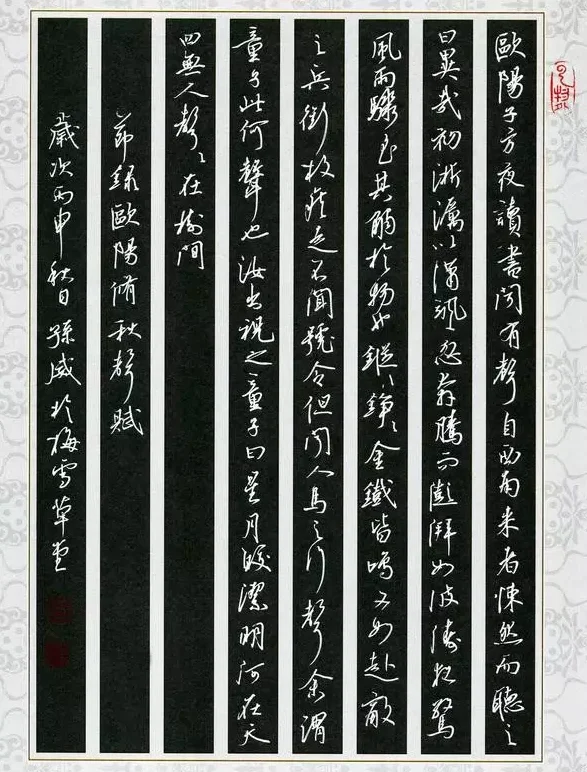 歐陽子方夜讀書聞有聲自西南來者悚然而聽之
曰異哉初淅瀝以瀟颯忽奔騰而澎湃如波濤夜驚
風雨驟至其觸於物也鏦〻錚〻金鐵皆鳴又如赴敵
之兵銜枚疾走不聞號令但聞人馬之行聲余謂
童子此何聲也汝出視之童子曰星月皎潔明河在天
四無人聲〻在樹間
節錄歐陽脩秋聲賦
歲次丙申秋日孫威於梅雪草堂